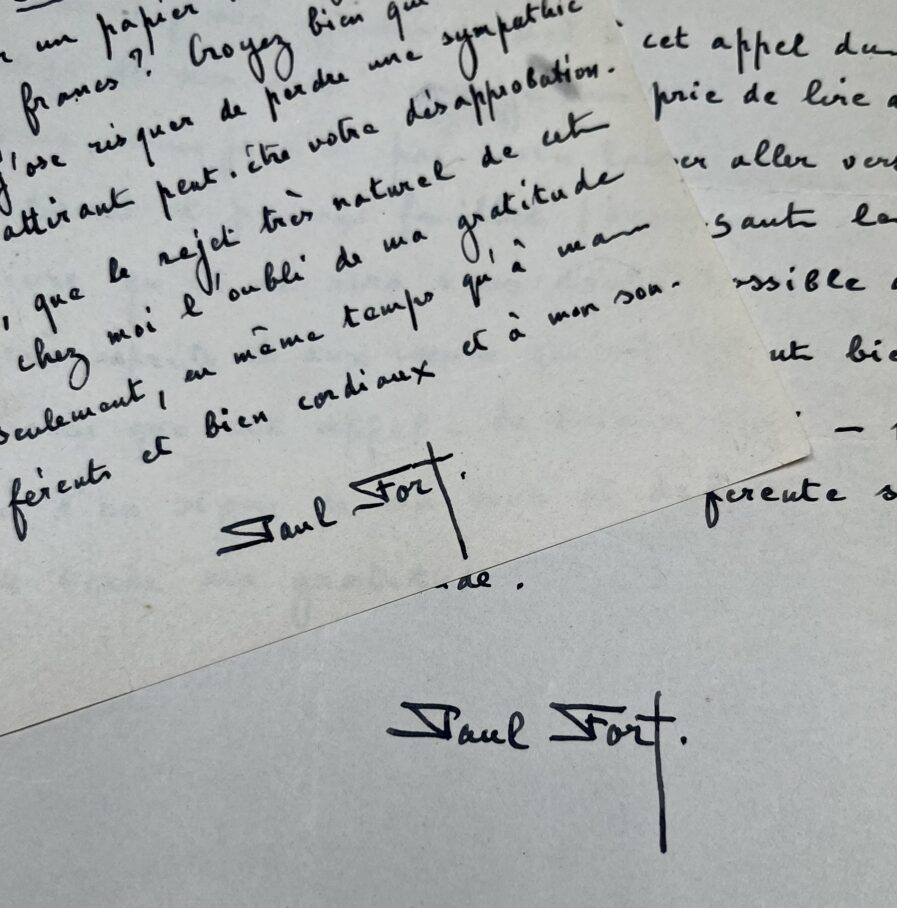 un papier
francs? Croyez bien que
j'ose risquer de perdre une sympathie
attirant peut-être votre désapprobation.
, que le rejet très naturel de cet
chez moi l'oubli de ma gratitude
seulement, en même temps qu'à ma
férents et bien cordiaux et à mon sou-
Paul Fort.
cet appel du
prie de lire
er aller vers
sante la
ssible
ut bie
férente s
de.
Paul Fort.